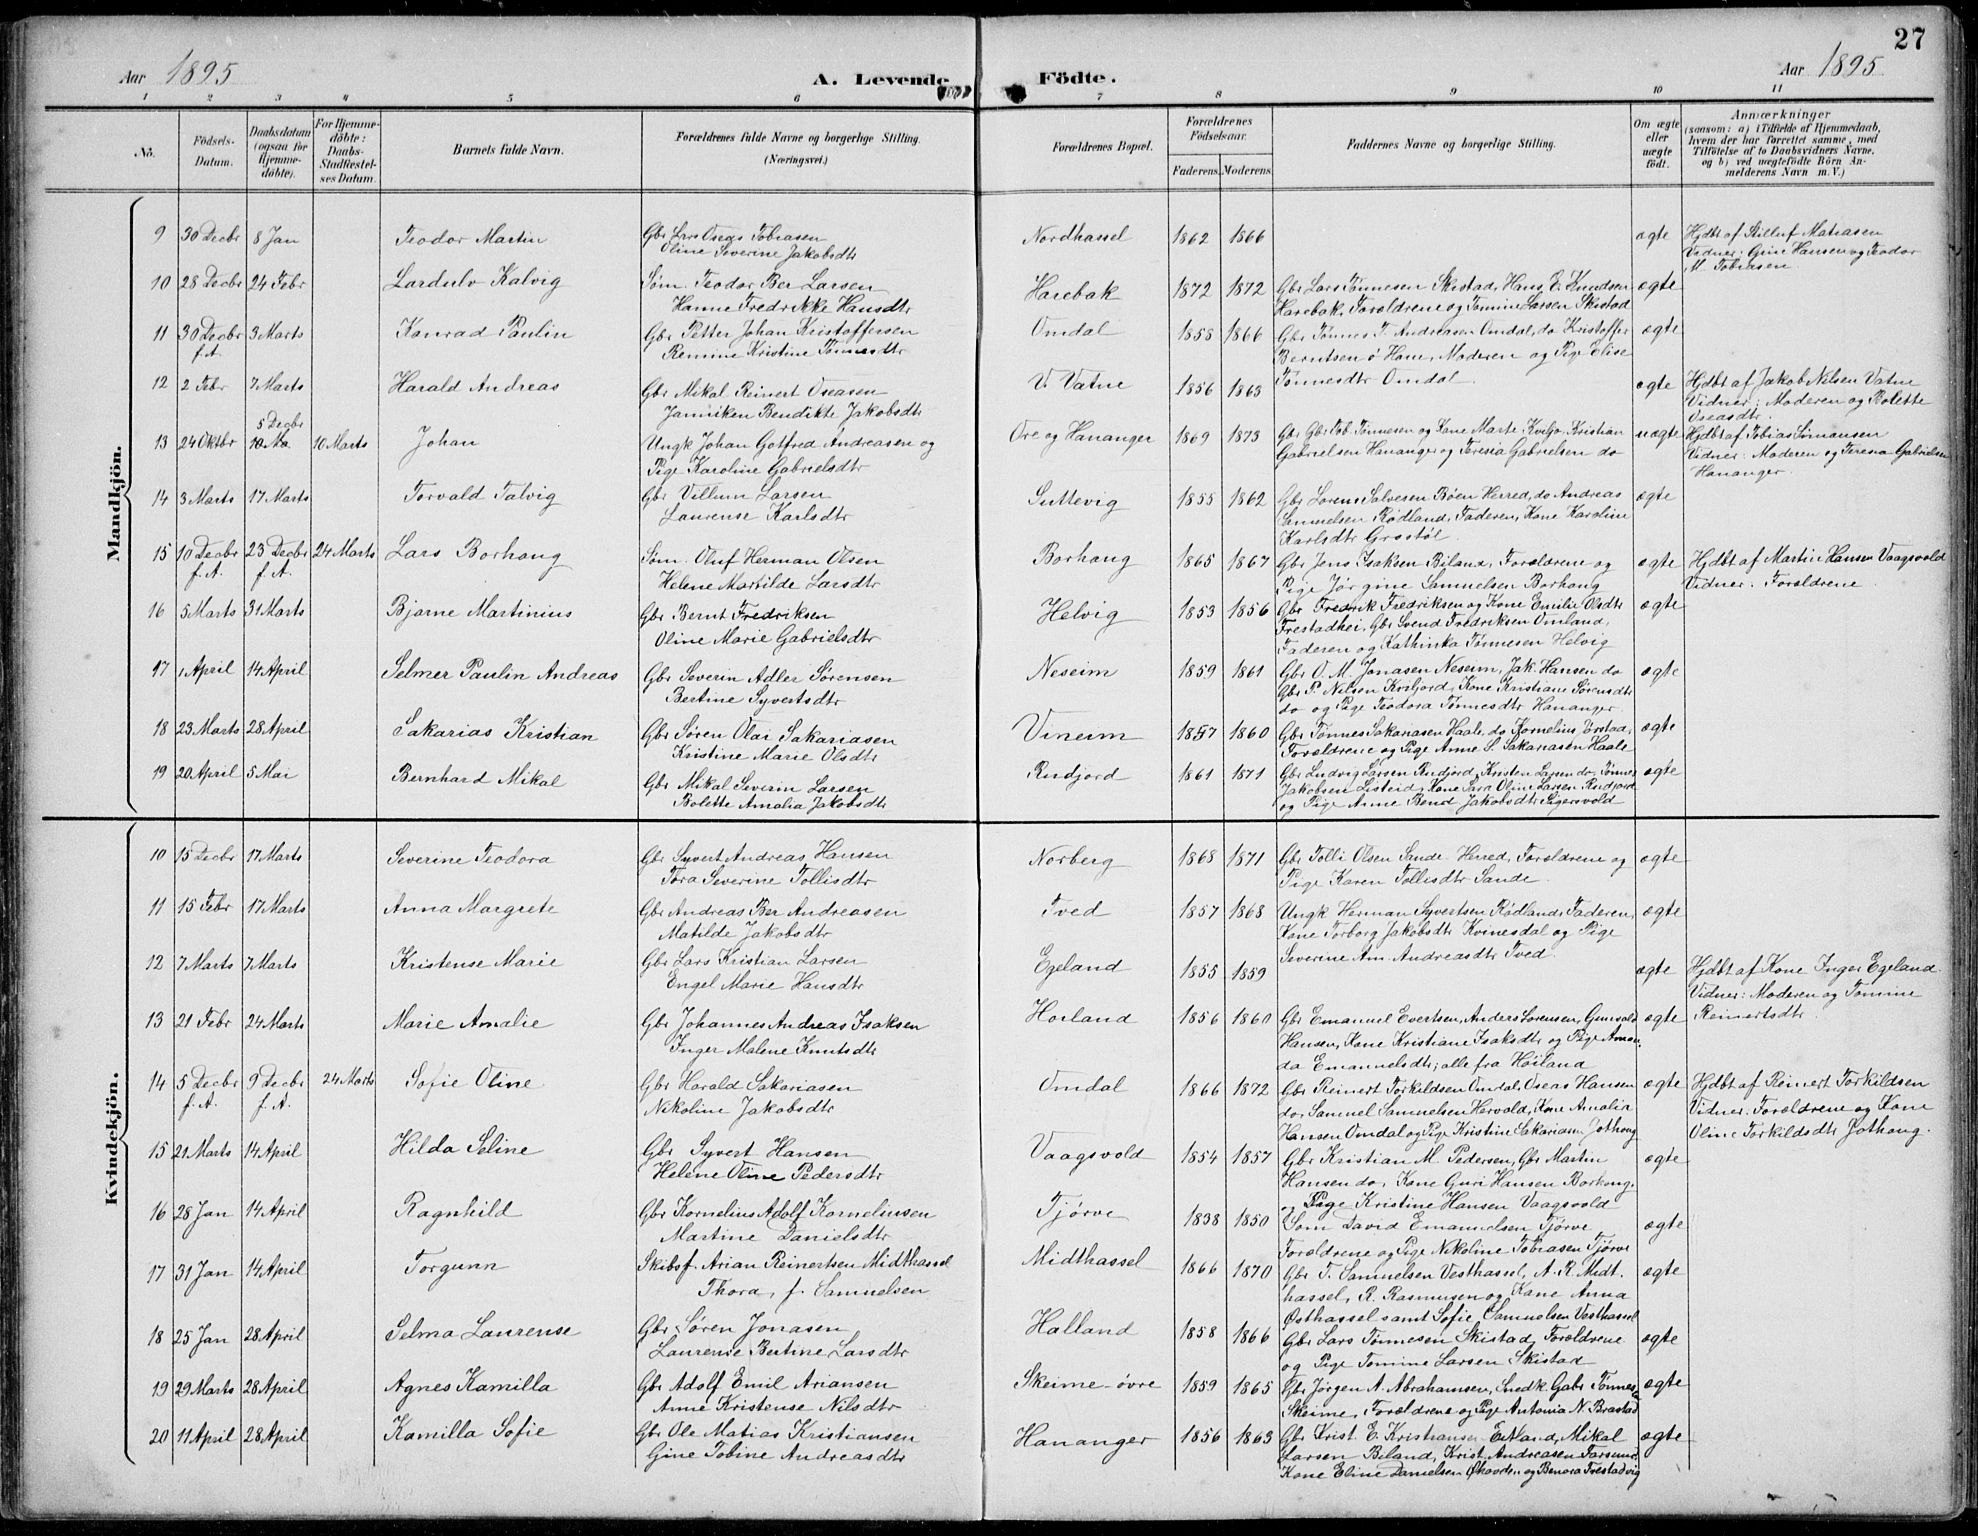 27
Aar 1895 A. Levende Födte. Aar 1895
1 2 3 4 5 6 7 8 9 10 11
No. Födsels-Datum. Daabsdatum (ogsaa for Hjemme-döbte). For Hjemme-döbte: Daabs-Stadfæstel-ses Datum. Barnets fulde Navn. Forældrenes fulde Navne og borgerlige Stilling. (Næringsvei.) Forældrenes Bopæl. Forældrenes Födselsaar. Faderens. Moderens. Faddernes Navne og borgerlige Stilling. Om ægte eller uægte födt. Anmærkninger (saasom: a) i Tilfælde af Hjemmedaab, hvem der har forrettet samme, med Tilföielse af to Daabsvidners Navne, og b) ved uægtefödte Börn An-melderens Navn m. V.)
Mandkjön.
9 30 Decbr 8 Jan Teodor Martin Gbr Lars Oseas Tobiasen Nordhassel 1862 1866 ægte Hjdbt af Stilluf Matiasen
Oline Severine Jakobsdtr Vidner: Gine Hansen og Teodor
M. Tobiasen
10 28 Decbr 24 Febr Lardulv Kalvig Söm. Teodor Ber Larsen Harebak 1872 1872 Gbr Lars Tönnesen Skistad, Hans E. Knudsen ægte
Hanne Fredrikke Hansdtr Harebak, Forældrene og Tomine Larsen Skistad
11 30 Decbr f.A. 3 Marts Konrad Paulin Gbr Petter Johan Kristoffersen Omdal 1858 1866 Gbr Tønnes T. Andreasen Omdal, do Kristoffer ægte
Remine Kristine Tönnesdtr Berntsen ö Hane, Moderen og Pige Elise
Tønnesdtr Omdal
12 2 Febr 7 Marts Harald Andreas Gbr Mikal Reinert Oseasen V. Vatne 1856 1863 ægte Hjdbt af Jakob Nilsen Vatne
Janniken Bendikte Jakobsdtr Vidner: Moderen og Bolette
Oseasdtr.
13 24 Oktbr 5 Decbr 10 Marts Johan Ungk Johan Gotfred Andreasen og Ore og Hananger 1869 1873 Gbr Tob. Tönnesen og Kone Marte, Kristian uægte Hjdbt af Tobias Simonsen
Pige Karoline Gabrielsdtr Gabrielsen Hananger og Teresia Gabrielsen do Vidner: Moderen og Teresia Gabrielsen
Hananger.
14 3 Marts 17 Marts Torvald Talvig Gbr Villum Larsen Suttevig 1855 1862 Gbr Lorens Salvesen Bøen Herred, do Andreas ægte
Laurense Karlsdtr Samuelsen Rødland, Faderen, Kone Karoline
Karlsdtr Grostøl.
15 10 Decbr f.A. 23 Decbr f.A. 24 Marts Lars Borhaug Söm. Oluf Herman Olsen Borhaug 1865 1867 Gbr Jens Isaksen Biland, Forældrene og ægte Hjdbt af Martin Hansen Vaagsvold
Helene Martilde Larsdtr Pige Jørgine Samuelsen Borhaug Vidner: Forældrene
16 5 Marts 31 Marts Bjarne Martinius Gbr Bernt Fredriksen Helvig 1853 1856 Gbr Fredrik Fredriksen og Kone Emilie Olsdtr ægte
Oline Marie Gabrielsdtr Frestadhei, Gbr Svend Fredriksen Omland,
Faderen og Kathinka Tønnesen Helvig
17 1 April 14 April Selmer Paulin Andreas Gbr Severin Adler Sörensen Neseim 1859 1861 Gbr O. M. Jonasen Neseim, Jak. Hansen do ægte
Bertine Syvertsdtr Gbr P. Nilsen Kviljord, Kone Kristiane Sörensdtr
do og Pige Teodora Tönnesdtr Hananger.
18 23 Marts 28 April Sakarias Kristian Gbr Søren Olai Sakariasen Vineim 1857 1860 Gbr Tønnes Sakariasen Haale, do Kornelius Jørstad, ægte
Kristine Marie Olsdtr Forældrene og Pige Anne S. Sakariasen Haale
19 20 April 5 Mai Bernhard Mikal Gbr Mikal Severin Larsen Rudjord 1861 1871 Gbr Ludvig Larsen Rudjord, Kristen Larsen do, Tønnes ægte
Bolette Amalia Jakobsdtr Jakobsen Listeid, Kone Sara Oline Larsen Rudjord
og Pige Anne Bend. Jakobsdtr Sigersvold
Kvindekjön.
10 15 Decbr 17 Marts Severine Teodora Gbr Syvert Andreas Hansen Norberg 1868 1871 Gbr Tolli Olsen Sande Herred, Forældrene og ægte
Tora Severine Tollisdtr Pige Karen Tollisdtr Sande.
11 15 Febr 17 Marts Anna Margrete Gbr Andreas Ber Andreasen Tved 1857 1868 Ungk Herman Syvertsen Rødland, Faderen, ægte
Matilde Jakobsdtr Kone Torborg Jakobsdtr Kvinesdal og Pige
Severine Am. Andreasdtr Tved.
12 7 Marts 7 Marts Kristense Marie Gbr Lars Kristian Larsen Egeland 1855 1859 ægte Hjdbt af Kone Inger Egeland.
Engel Marie Hansdtr Vidner: Moderen og Tomine
Reinertsdtr
13 21 Febr 24 Marts Marie Amalie Gbr Johannes Andreas Isaksen Hoiland 1856 1860 Gbr Emanuel Evertsen, Anders Sörensen, Gunvald ægte
Inger Malene Knutsdtr Hansen, Kone Kristiane Isaksdtr og Pige Aman-
da Emanuelsdtr, alle fra Høiland
14 5 Decbr f.A. 9 Decbr f.A. 24 Marts Sofie Oline Gbr Harald Sakariasen Omdal 1866 1872 Gbr Reinert Torkildsen Omdal, Oseas Hansen ægte Hjdbt af Reinert Torkildsen
Nikoline Jakobsdtr do, Samuel Samuelsen Hervold, Kone Amalia Vidner: Forældrene og Kone
Hansen Omdal og Pige Kristine Sakariasen Jothaug Oline Torkildsdtr Jothaug.
15 21 Marts 14 April Hilda Seline Gbr Syvert Hansen Vaagsvold 1854 1857 Gbr Kristian M. Pedersen, Gbr Martin ægte
Helene Oline Pedersdtr Hansen do, Kone Guri Hansen Borhaug
og Pige Kristine Hansen Vaagsvold
16 28 Jan 14 April Ragnhild Gbr Kornelius Adolf Korneliussen Tjørve 1838 1850 Söm David Emanuelsen Tjørve ægte
Martine Danielsdtr Forældrene og Pige Nikoline Tobiasen Tjørve
17 31 Jan 14 April Torgunn Skibsf. Arian Reinertsen Midthassel Midthassel 1866 1870 Gbr T. Samuelsen Vesthassel, A. R. Midt- ægte
Thora, f. Samuelsen hassel, R. Rasmusen og Kone Anna
Østhassel samt Sofie Samuelsen Vesthassel
18 25 Jan 28 April Selma Laurense Gbr Søren Jonasen Halland 1858 1866 Gbr Lars Tönnesen Skistad, Forældrene ægte
Laurense Bertine Larsdtr og Pige Tomine Larsen Skistad
19 29 Marts 28 April Agnes Kamilla Gbr Adolf Emil Ariansen Skeime-övre 1859 1865 Gbr Jörgen A. Abrahamsen, Snedk Gabr Tönnes ægte
Anne Kristense Nilsdtr Skeime, Forældrene og Pige Antonia N. Brastad
20 11 April 28 April Kamilla Sofie Gbr Ole Matias Kristiansen Hananger 1856 1863 Gbr Krist. E. Kristiansen Eitland, Mikal ægte
Gine Tobine Andreasdtr Larsen Biland, Krist. Andreasen Farsund,
Kone Eline Danielsen og Benora Frestadvig